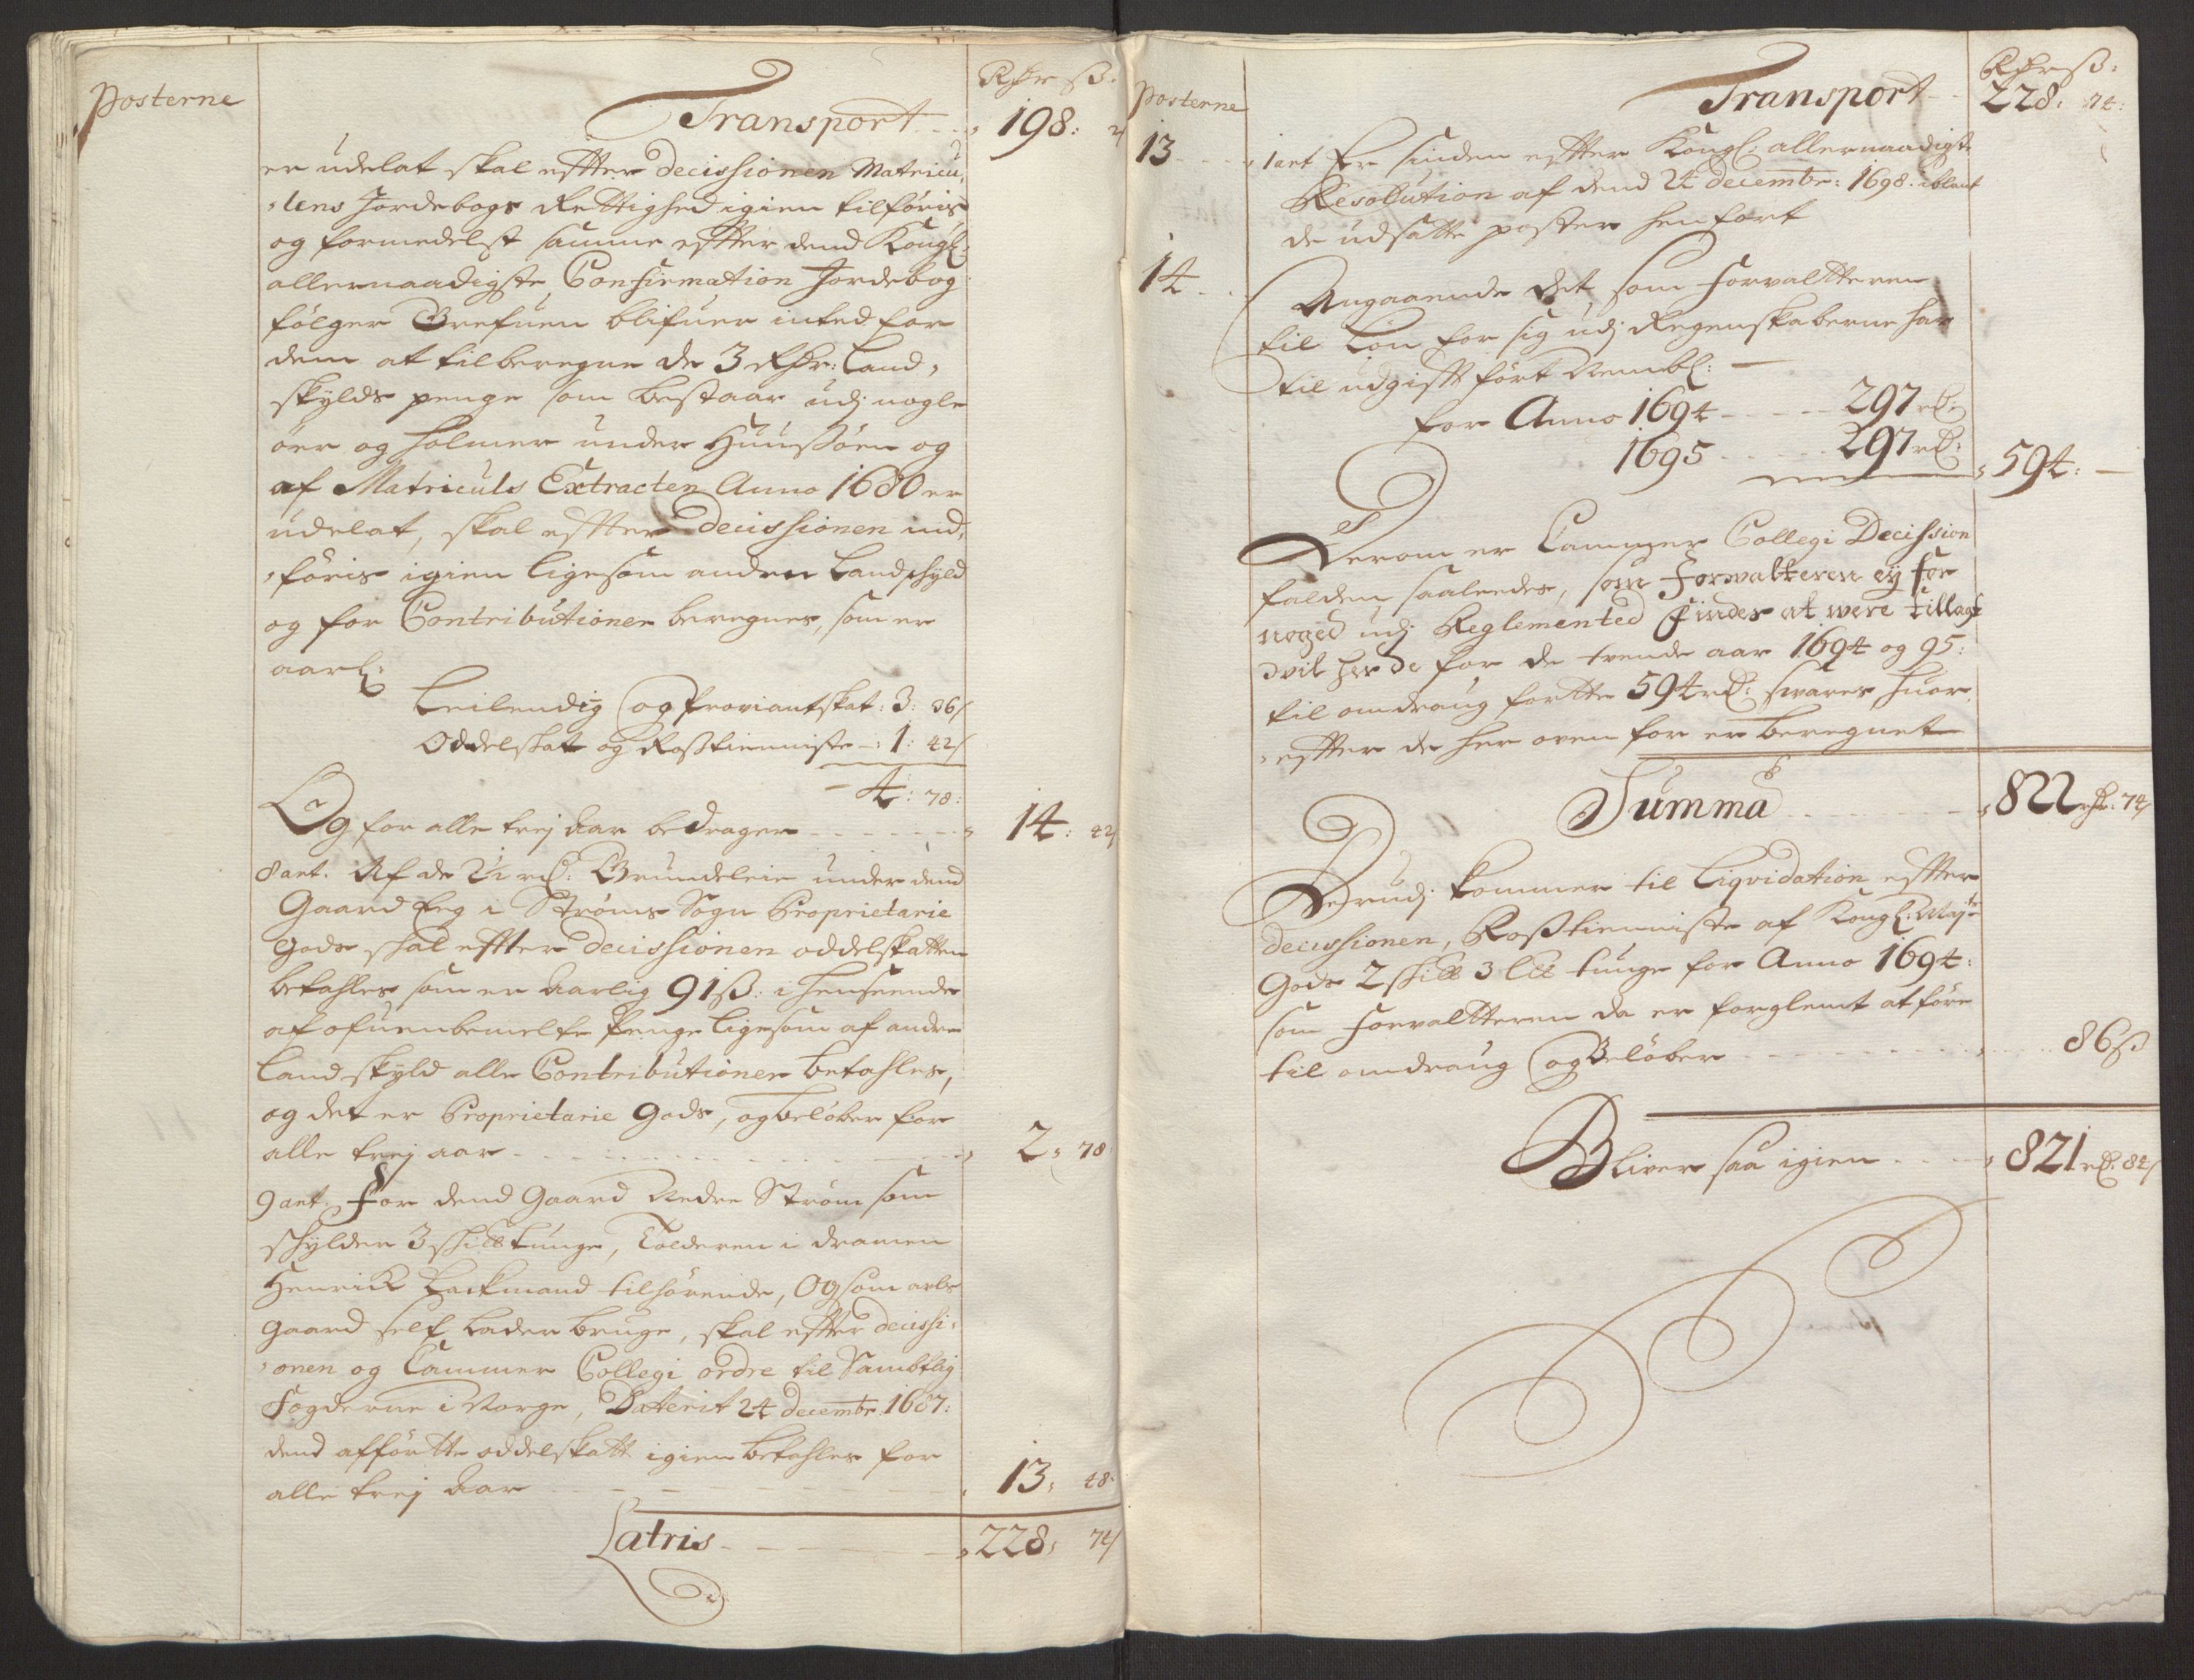 Posterne
Rdr ß:
Transport 198: 2
er udelat skal efter decissionen Matricu,
lens Jordebogs Rettighed igien tilføris
og formedelst samme efter dend Kongl:
allernaadigste Confirmation Jordebog
følger Grefuen blifuer inted for
dem at tilberegne de 3 Rdr: Land,
skylds penge som bestaar udj nogle
øer og holmer under Huusøen og
af Matriculs Extracten Anno 1680 er
udelat, skal efter Decissionen ind,
føris igien ligesom anden Landschyld
og for Contributioner beregnes, som er
aarl:
Leilendig og Proviantskat: 3: 36ß
Oddelskat og Rosstienniste -: 1: 42ß
4: 78:
Og for alle trej aar bedrager 14: 42ß
8ant. Af de 2½ rd: Grundeleie under dend
Gaard Eeg i Strøms Sogn Proprietarie
Gods schal efter Decissionen oddelskatten
betahles som er aarlig 91ß: i henseende
af ofuenbemelte Penge ligesom af andre
Landskyld alle Contributioner betahles,
og det er Proprietarie Gods, og beløber for
alle trej aar 2: 78
9ant. For dend Gaard Nedre Strøm som
schylder 3 skill tunge, Tolderen i Dramen
Henrich Lackmand tilhørende, Og som avls
gaard self lader bruge, skal efter decissi,
onen og Cammer Collegi ordre til Sambtlig
Fogderne i Norge, Daterit 24 decembr. 1687:
dend affførtte oddelskatt igien betahles for
alle trej aar 13: 48
Latris 228: 74ß
Posterne
Rdr ß:
Transport 228: 74:
13 1ant Er sinden efter Kongl: allernaadigst
Resolution af dend 24 decembr: 1698. iblant
de udsatte poster henført
14 Angaaende det som Forvaltteren
til Løn for sig udj Regenskaberne har
til udgift ført Nembl:
for Anno 1694 297 rd:
1695 297 rd: 594:
Derom er Cammer Collegi Decission
falden saaleedes, som Forvalteren ej for
noged udj Reglemented Findes at were tillagt
dvil her de for de tvende aar 1694 og 95:
til omdraug førtte 594 rd: svares huor,
efter de her oven for er beregnet
Summa 822 rdr. 74ß
Derudj kommer til Liqvidation efter
decissionen, Rosstienniste af Kongl: Majts
Gods 2 skill 3 Lill tunge for Anno 1694:
som Forvaltteren da er forglemt at føre
til omdraug og Beløber 86ß
Bliver saa igien 821 rd. 84ß